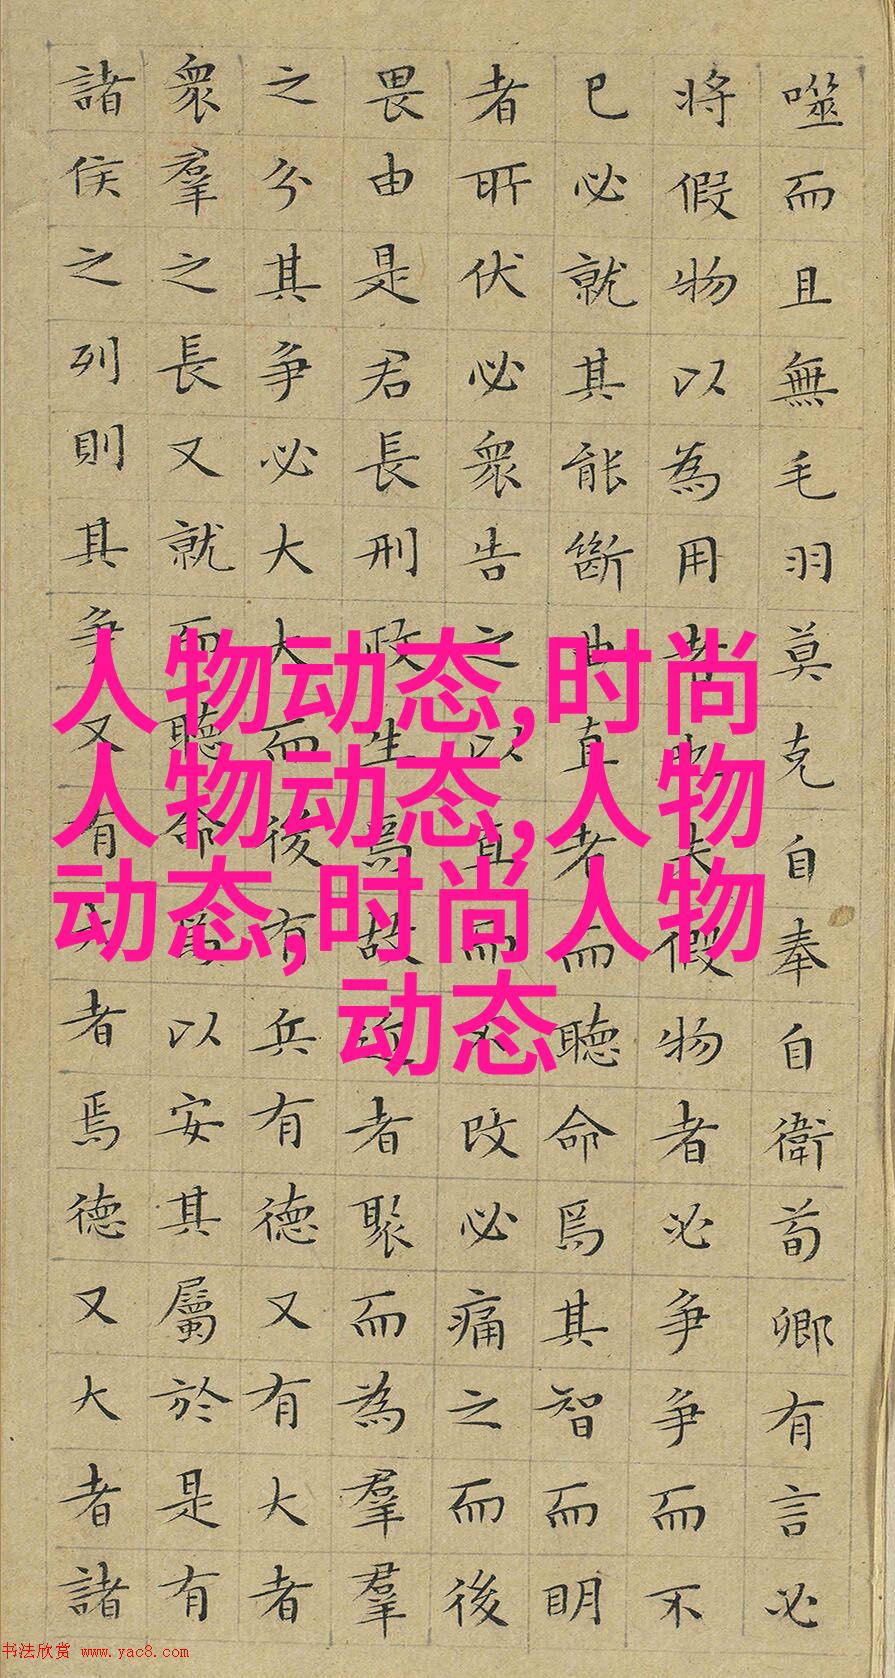 噬而且無毛羽莫克自奉自衛荀卿有言必
將假物以為用者也夫假物者必爭爭而不
已必就其能斷曲直者而聽命焉其智而明
者所伏必衆告之以直而不改必痛之而後
畏由是君長刑政生焉故近者聚而為羣羣
之分其爭必大大而後有兵有德又有大者
衆羣之長又就而聽命焉以安其屬於是有
諸侯之列則其爭又有大者焉德又大者諸
人物动态,时尚
人物动态,人物
动态,时尚人物
动态
书法欣赏 www.yac8.com